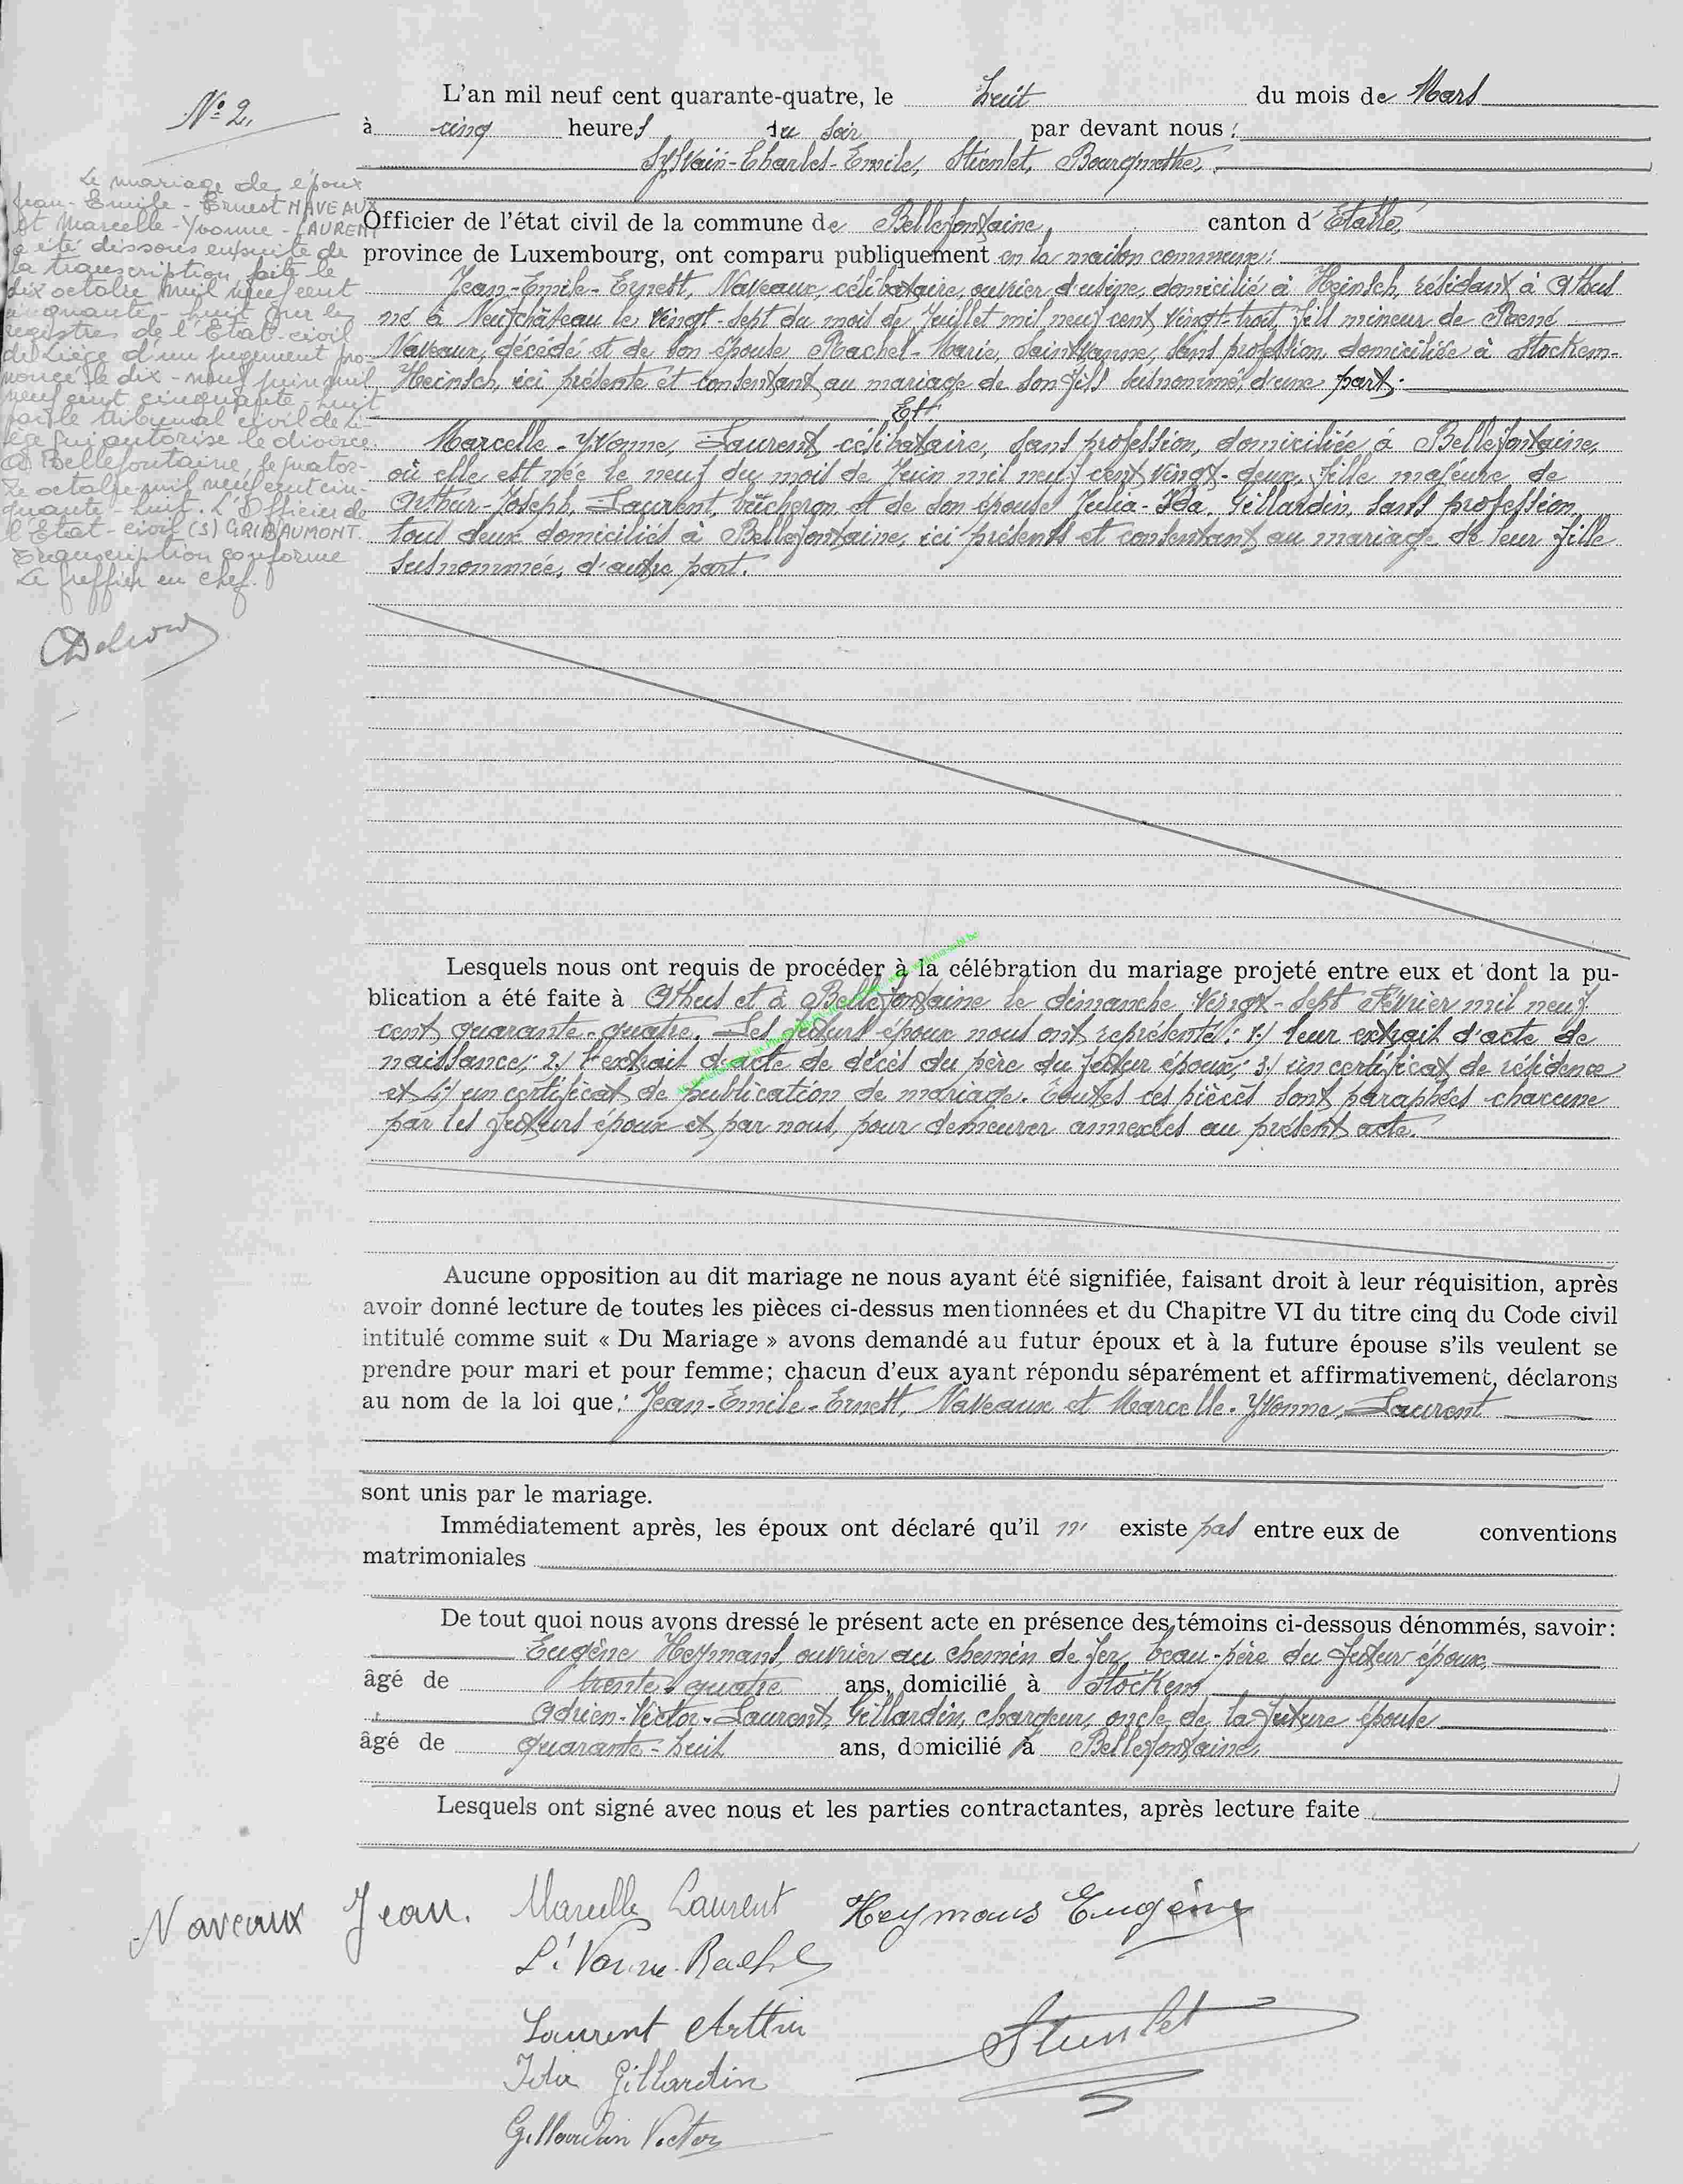 N° 2.
Le mariage de époux
Jean-Emile-Ernest NAVEAUX
et Marcelle-Yvonne-LAURENT
a été dissous ensuite de
la transcription faite le
dix octobre mil neuf cent
cinquante-huit sur les
registres de l'Etat-civil
de Liège d'un jugement pro-
noncé le dix-neuf juin mil
neuf cent cinquante-huit
par le tribunal civil de Li-
ège qui autorise le divorce.
A Bellefontaine, le quator-
ze octobre mil neuf cent cin-
quante-huit. L'Officier de
l'Etat-civil (s) GRIBAUMONT.
Transcription conforme
Le greffier en chef.
L'an mil neuf cent quarante-quatre, le huit du mois de Mars
à cinq heures du soir par devant nous :
Sylvain-Charles-Emile, Bourgmestre,
Officier de l'état civil de la commune de Bellefontaine, canton d'Etalle,
province de Luxembourg, ont comparu publiquement en la maison commune:
Jean-Emile-Ernest, Naveaux, célibataire, ouvrier d'usine, domicilié à Heinsch, résidant à Athus
né à Neufchâteau le vingt-sept du mois de Juillet mil neuf cent vingt-trois, fils mineur de René
Naveaux, décédé et de son épouse Rachel-Marie, Saintvanne, sans profession, domiciliée à Stockem-
Heinsch, ici présente et consentant au mariage de son fils susnommé, d'une part:
Et
Marcelle-Yvonne, Laurent, célibataire, sans profession, domiciliée à Bellefontaine,
où elle est née le neuf du mois de Juin mil neuf cent vingt-deux, fille majeure de
Arthur-Joseph, Laurent, bûcheron et de son épouse Julia-Ida, Gillardin, sans profession,
tous deux domiciliés à Bellefontaine, ici présents et consentant au mariage de leur fille
susnommée, d'autre part.
Lesquels nous ont requis de procéder à la célébration du mariage projeté entre eux et dont la pu-
blication a été faite à Athus et à Bellefontaine le dimanche vingt-sept Février mil neuf
cent quarante-quatre. Les futurs époux nous ont représenté: 1:) leur extrait d'acte de
naissance; 2:) l'extrait d'acte de décès du père du futur époux; 3:) un certificat de résidence
et 4:) un certificat de publication de mariage. Toutes ces pièces sont paraphées chacune
par les futurs époux et par nous, pour demeurer annexées au présent acte.
Aucune opposition au dit mariage ne nous ayant été signifiée, faisant droit à leur réquisition, après
avoir donné lecture de toutes les pièces ci-dessus mentionnées et du Chapitre VI du titre cinq du Code civil
intitulé comme suit « Du Mariage » avons demandé au futur époux et à la future épouse s'ils veulent se
prendre pour mari et pour femme; chacun d'eux ayant répondu séparément et affirmativement, déclarons
au nom de la loi que: Jean-Emile-Ernest, Naveaux et Marcelle-Yvonne, Laurent
sont unis par le mariage.
Immédiatement après, les époux ont déclaré qu'il n' existe pas entre eux de conventions
matrimoniales
De tout quoi nous avons dressé le présent acte en présence des témoins ci-dessous dénommés, savoir:
Eugène Heymans, ouvrier au chemin de fer, beau-père du futur époux,
âgé de trente-quatre ans, domicilié à Stockem,
Adrien-Victor-Laurent, Gillardin, chargeur, oncle de la future épouse
âgé de quarante-huit ans, domicilié à Bellefontaine,
Lesquels ont signé avec nous et les parties contractantes, après lecture faite
Naveaux Jean. Marcelle Laurent Heymans Eugène
Laurent Arthur
Ida Gillardin
Gillardin Victor